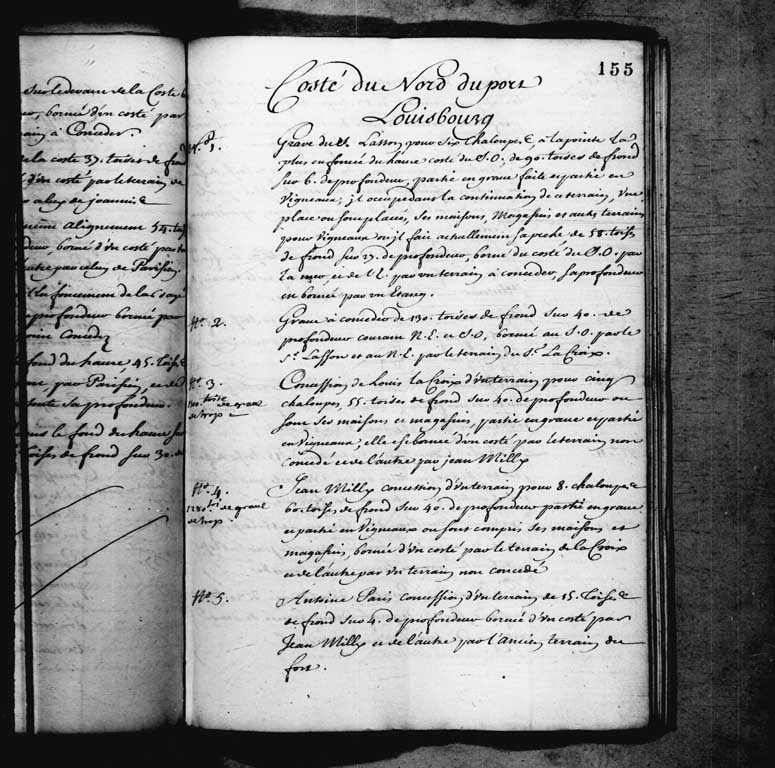 sur le devant de la Coste
bornée d'un costé par
à Conceder
de la coste 37. toises de frond
d'un costé par le terrain de
de joannis
même alignement 54. toi
bornée d'un costé par
l'autre par celuy de Parisien
l'enfoncement de la
profondeur bornée par
Conceder
fond du havre 45. Toises
par Parisien, et de
toute sa profondeur.
le fond du havre sur
Toises de frond sur 30. de
155
Costé du Nord du port
Louisbourg
N.º 1.
Grave du S. Lasson pour six Chaloupes, a la pointe la
plus enfoncée du havre costé du S.O, de 90. toises de frond
sur 6. de profondeur, partie en grave faite et partie en
Vigneaux; jl occupe dans la continuation de ce terrain, une
place ou sont placés, ses maisons, Magasins et autres terrains
pour Vigneaux où jl fait actuellement sa peche de 58. toises
de frond sur 27. de profondeur, borné du costé du S.O. par
la mer, et de l'E. par un terrain a conceder, sa profondeur
est bornée par un Etang.
N.º 2.
Grave a conceder de 130. toises de frond sur 40. de
profondeur courant N.E. et S.O, bornée au S.O. par le
S.r Lasson et au N.E. par le terrain du S.r La Croix.
N.º 3.
toises de grave
de trop
Concession de Louis la Croix d'un terrain pour cinq
chaloupes, 55. toises de frond sur 40. de profondeur ou
sont ses maisons et magasins, partie en grave et partie
en Vigneaux, elle est bornée d'un costé par le terrain non
concedé et de l'autre par jean Milly
N.º 4.
de grave
de trop
Jean Milly concession d'un terrain pour 8. chaloupes
60. toises de frond sur 40. de profondeur partie en grave
et partie en Vigneaux ou sont compris ses maisons et
magasins, bornée d'un costé par le terrain de la Croix
et de l'autre par un terrain non concedé
N.º 5.
Antoine Paris concession d'un terrain de 15. Toises
de frond sur 4. de profondeur borné d'un costé par
Jean Milly et de l'autre par l'ancien terrain du
fort.